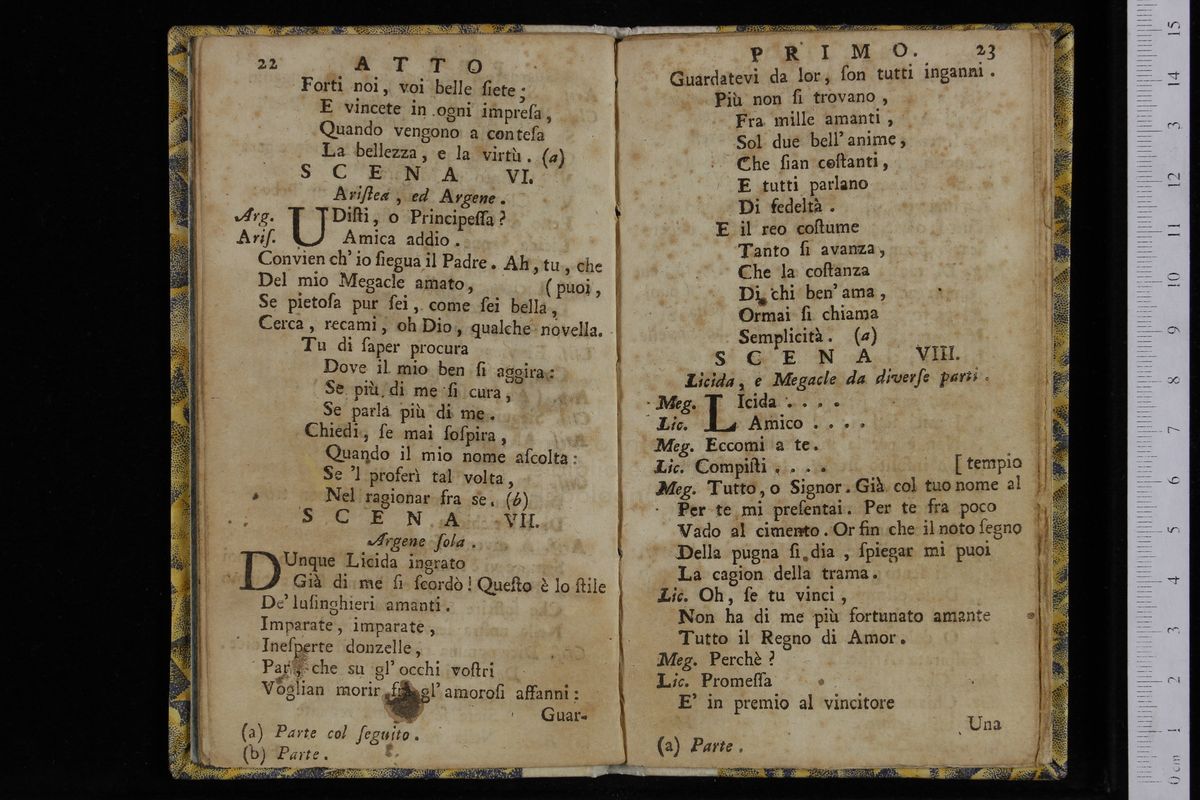 22 ATTO
Forti noi, voi belle ſiete;
E vincete in ogni impreſa,
Quando vengono a conteſa
La bellezza, e la virtù. (a)
SCENA VI.
Ariſtea, ed Argene.
Arg. UDiſti, o Principeſſa?
Ariſ. Amica addio.
Convien ch' io ſiegua il Padre. Ah, tu, che
Del mio Megacle amato, (puoi,
Se pietoſa pur ſei, come ſei bella,
Cerca, recami, oh Dio, qualche novella.
Tu di ſaper procura
Dove il mio ben ſi aggira:
Se più di me ſi cura,
Se parla più di me.
Chiedi, ſe mai ſoſpira,
Quando il mio nome aſcolta:
Se 'l proferì tal volta,
Nel ragionar fra se. (b)
SCENA VII.
Argene ſola.
DUnque Licida ingrato
Già di me ſi ſcordò! Queſto è lo ſtile
De' luſinghieri amanti.
Imparate, imparate,
Ineſperte donzelle,
Par, che su gl' occhi voſtri
Voglian morir gl' amoroſi affanni:
Guar-
(a) Parte col ſeguito.
(b) Parte.
PRIMO. 23
Guardatevi da lor, ſon tutti inganni.
Più non ſi trovano,
Fra mille amanti,
Sol due bell' anime,
Che ſian coſtanti,
E tutti parlano
Di fedeltà.
E il reo coſtume
Tanto ſi avanza,
Che la coſtanza
Di chi ben' ama,
Ormai ſi chiama
Semplicità. (a)
SCENA VIII.
Licida, e Megacle da diverſe parti.
Meg. LIcida ....
Lic. Amico ....
Meg. Eccomi a te.
Lic. Compiſti .... [tempio
Meg. Tutto, o Signor. Già col tuo nome al
Per te mi preſentai. Per te fra poco
Vado al cimento. Or fin che il noto ſegno
Della pugna ſi dia, ſpiegar mi puoi
La cagion della trama.
Lic. Oh, ſe tu vinci,
Non ha di me più fortunato amante
Tutto il Regno di Amor.
Meg. Perchè?
Lic. Promeſſa
E' in premio al vincitore
Una
(a) Parte.
0 cm 1 2 3 4 5 6 7 8 9 10 11 12 13 14 15